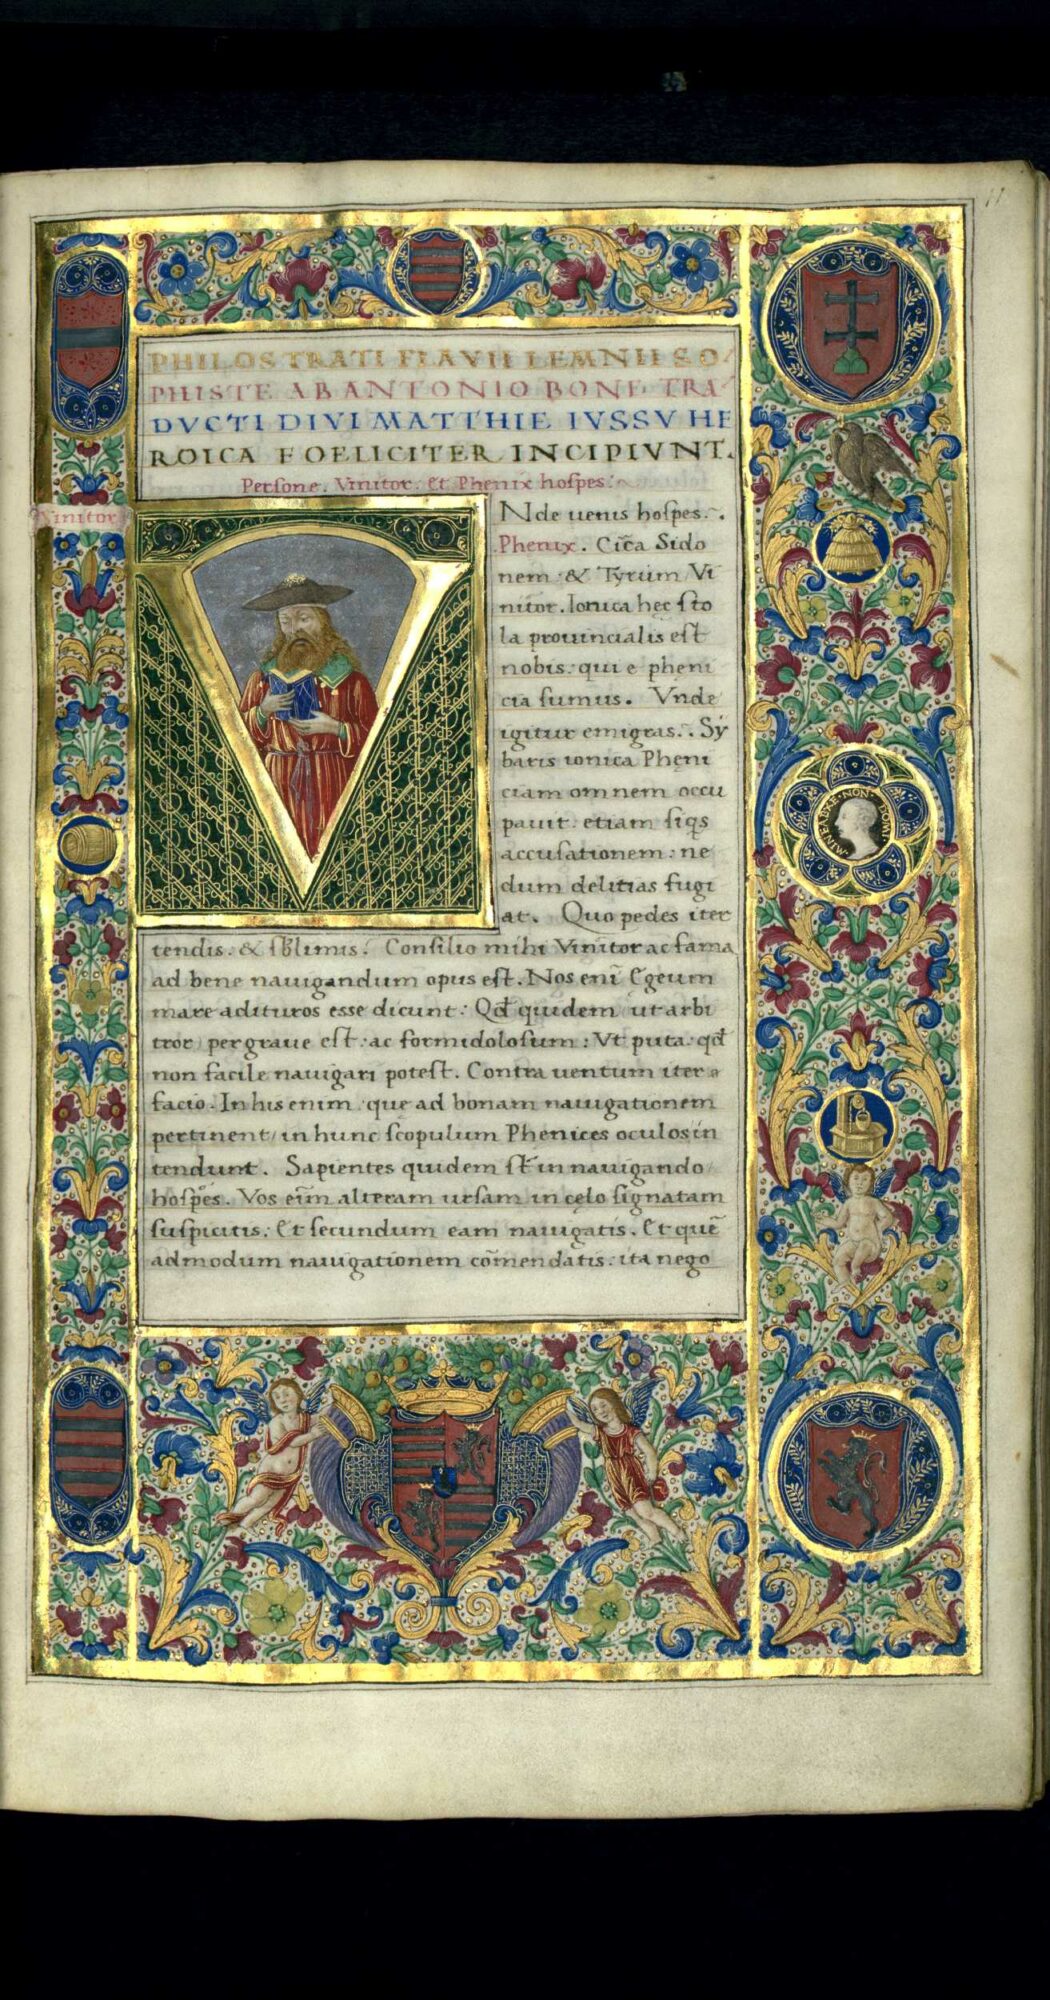 11
PHILOSTRATI FLAVII LEMNII SO/
PHISTE AB ANTONIO BONF. TRA/
DVCTI DIVI MATTHIE IVSSV HE
ROICA FOELICITER INCIPIVNT.
Persone. Vinitor. Et Phenix hospes.
Vinitor
VNde uenis hospes.
Phenix. Circa Sido
nem & Tyrum Vi
nitor. Ionica hec sto
la prouincialis est
nobis: qui e pheni
cia sumus. Vnde
igitur emigras. Sy
baris ionica Pheni
ciam omnem occu
pauit: etiam siqs
accusationem: ne
dum delitias fugi
at. Quo pedes iter
tendis: & sblimis. Consilio mihi Vinitor ac fama
ad bene nauigandum opus est. Nos enī Egeum
mare adituros esse dicunt: Qđ quidem ut arbi
tror pergraue est: ac formidolosum: Vt puta: qđ
non facile nauigari potest. Contra uentum iter
facio. In his enim que ad bonam nauigationem
pertinent/ in hunc scopulum Phenices oculos in
tendunt. Sapientes quidem st in nauigando
hospes. Vos eīm alteram ursam in cęlo signatam
suspicitis: Et secundum eam nauigatis. Et quē
admodum nauigationem cōmendatis: ita nego